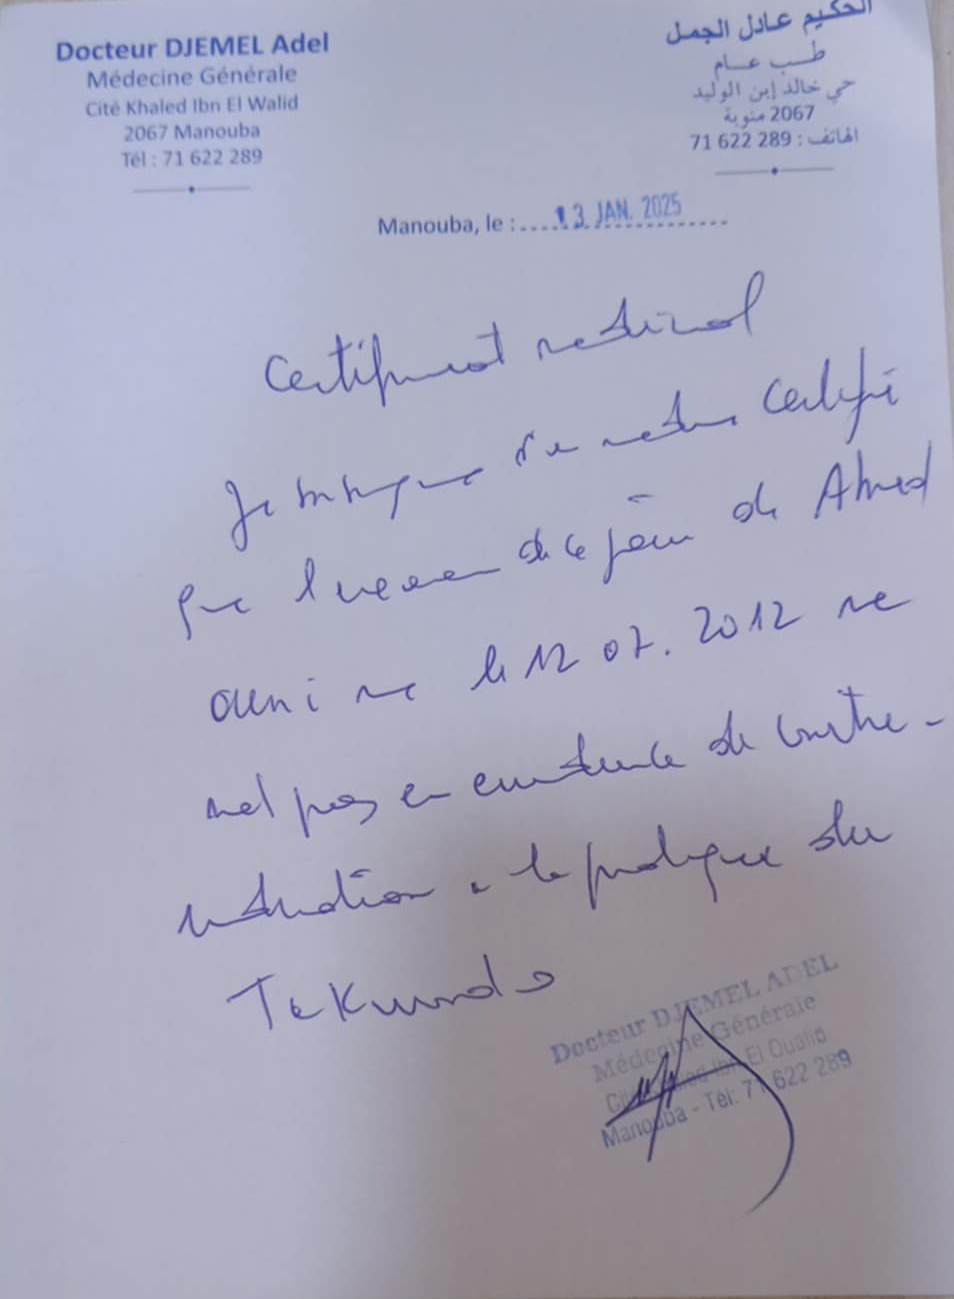 Docteur DJEMEL Adel
Médecine Générale
Cité Khaled Ibn El Walid
2067 Manouba
Tél : 71 622 289
الحكيم عادل الجمل
طب عام
حي خالد إبن الوليد
2067 منوبة
الهاتف : 289 622 71
Manouba, le : 13 JAN. 2025
Certificat medical
Je soussigné Dr en medecine certifie
que l'examen de ce jour de Ahmed
né le 12 07. 2012 ne
met pas en evidence de contre-
indication a la pratique du
Tekwondo
Docteur DJEMEL ADEL
Médecine Générale
Cité Khaled Ibn El Oualid
Manouba - Tél: 71 622 289